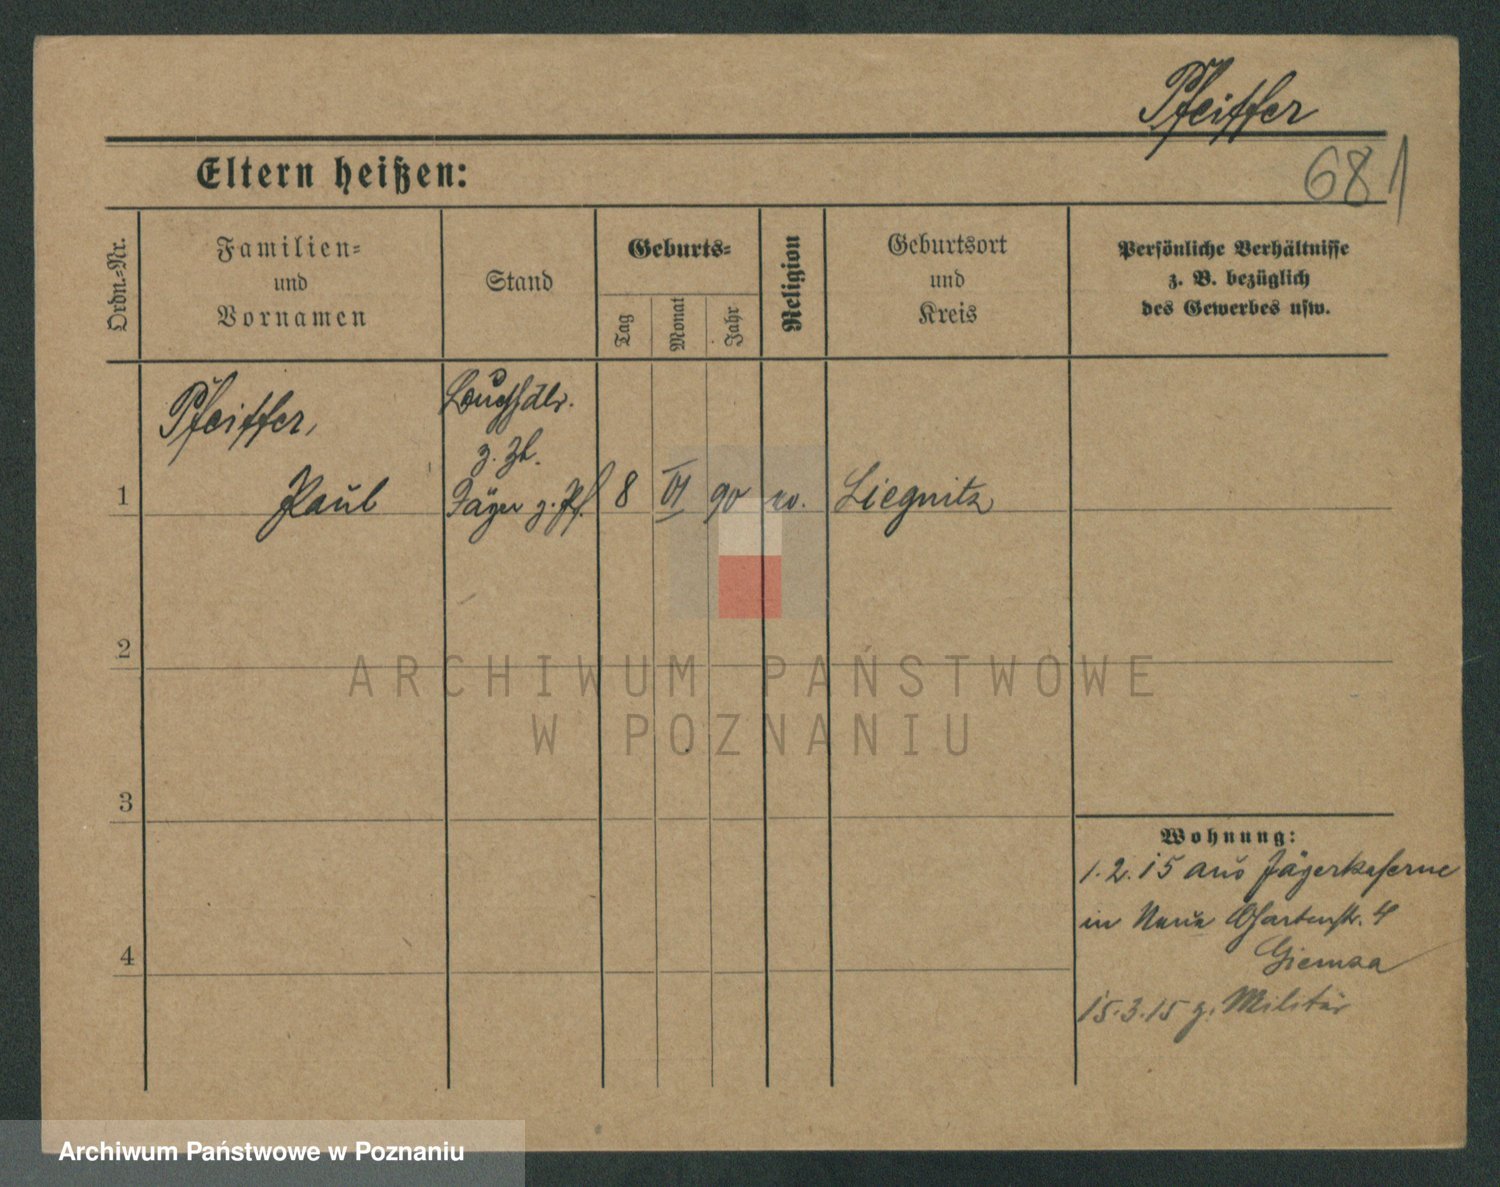 Pfeiffer
681
Eltern heißen:
Ordn.-Nr.
Familien-
und
Vornamen
Stand
Geburts-
Tag
Monat
Jahr
Religion
Geburtsort
und
Kreis
Persönliche Verhältnisse
z. B. bezüglich
des Gewerbes usw.
Pfeiffer,
z. Zt.
1 Paul Jäger z. Pf. 8 VI 90 ev. Liegnitz
2
ARCHIWUM PAŃSTWOWE
W POZNANIU
3
Wohnung:
1.2.15 aus Jägerkaserne
in Neue Gartenstr. 4
4
Giemsa
15.3.15 z. Militär
Archiwum Państwowe w Poznaniu